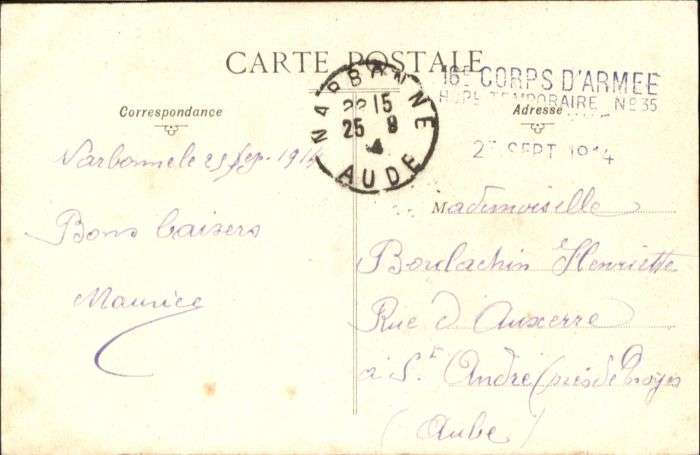 CARTE POSTALE
NARBONNE
22 15
25 9
4
AUDE
16E CORPS D'ARMEE
HOPL TEMPORAIRE No 35
25 SEPT 1914
Correspondance
Adresse
Narbonne le 25 Sep. 1914
Bons baisers
Maurice
Mademoiselle
Boulachin Henriette
Rue d'Auxerre
à St André (près de Troyes
(Aube)